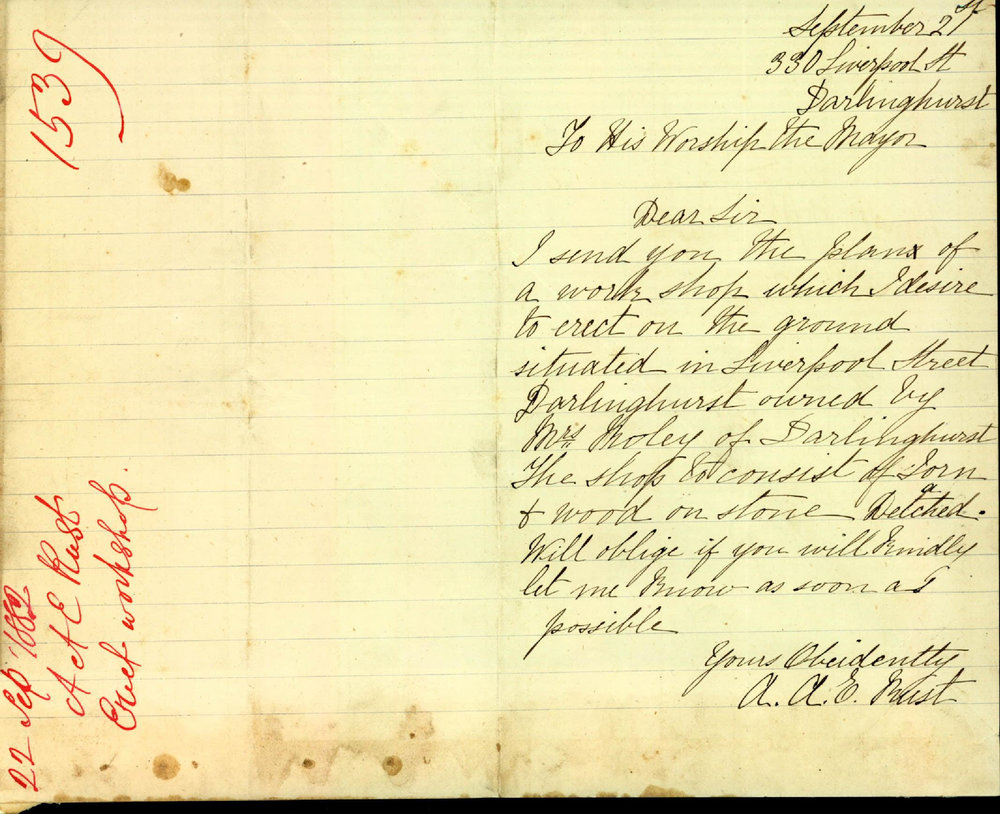 1539
22 Sep 1882
A A E Rust
Erect workshop.
September 21st
330 Liverpool St
Darlinghurst
To His Worship the Mayor
Dear Sir
I send you the plan of
a work shop which I desire
to erect on the ground
situated in Liverpool Street
Darlinghurst owned by
Mrs Moley of Darlinghurst
The shop to consist of Iorn
& wood on stone Detached.
Will oblige if you will Kindly
let me Know as soon as
possible
Yours Obeidently
A. A. E. Rust